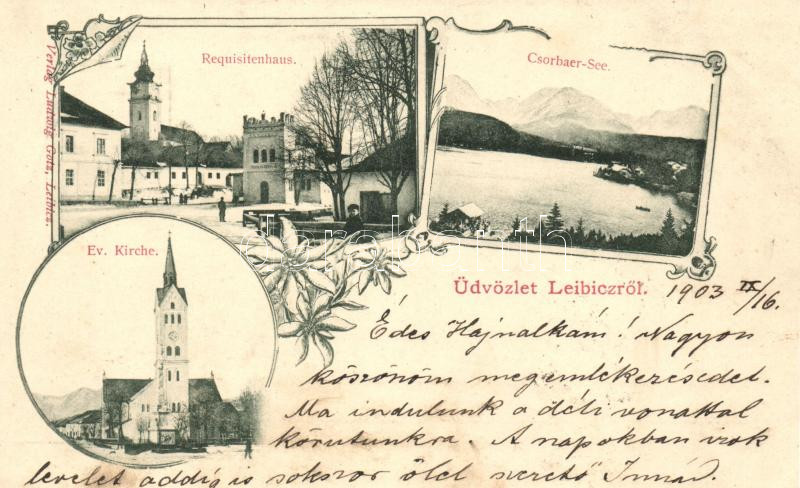 Requisitenhaus.
Csorbaer-See.
Verlag Ludwig Gotz, Leibicz.
Ev. Kirche.
darabanth.com
Üdvözlet Leibiczról.
1903 IX/16.
Édes Hajnalkám! Nagyon
köszönöm megemlékezésedet.
Ma indulunk a déli vonattal
körutunkra. A napokban irok
levelet addig is sokszor ölel szerető